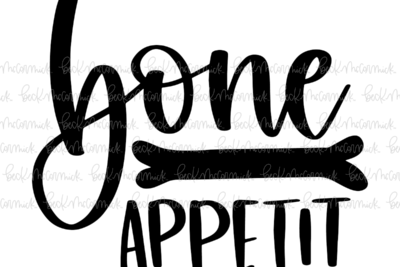 bone
APPETIT